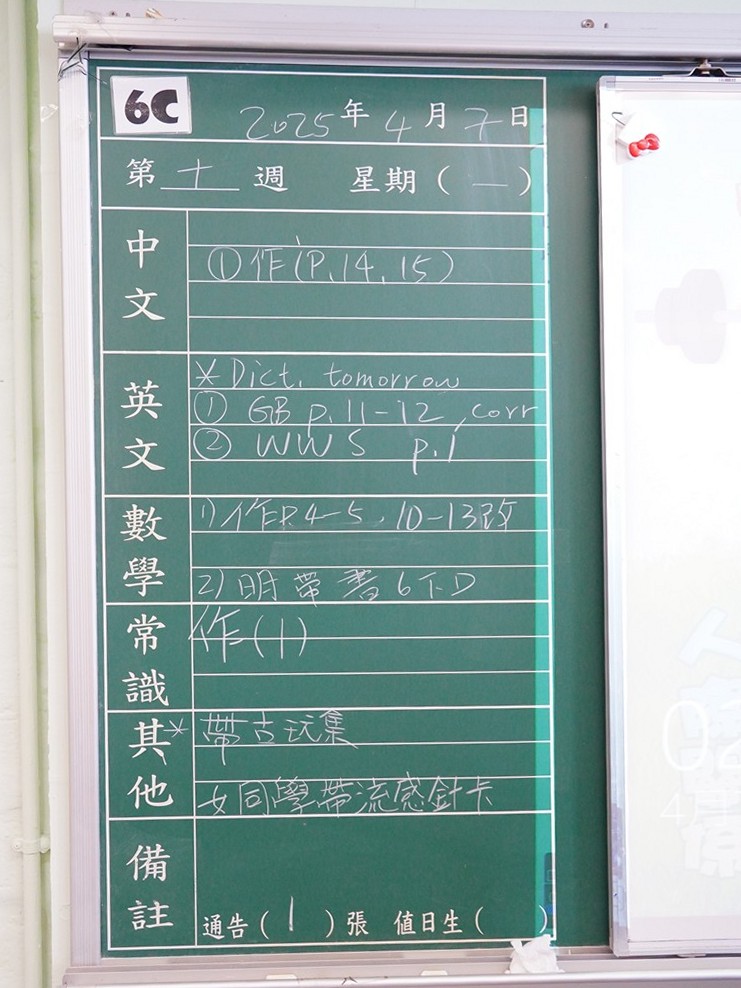 6C
2025年4月7日
第十週 星期(一)
中文
①作(P.14,15)
英文
* Dict. tomorrow
① GB p.11-12, corr
② WWS p.1
數學
1)作P.4-5,10-13改
2)明帶書6下D
常識
作(1)
其他
*帶古玩集
女同學帶流感針卡
備註
通告(1)張 值日生( )